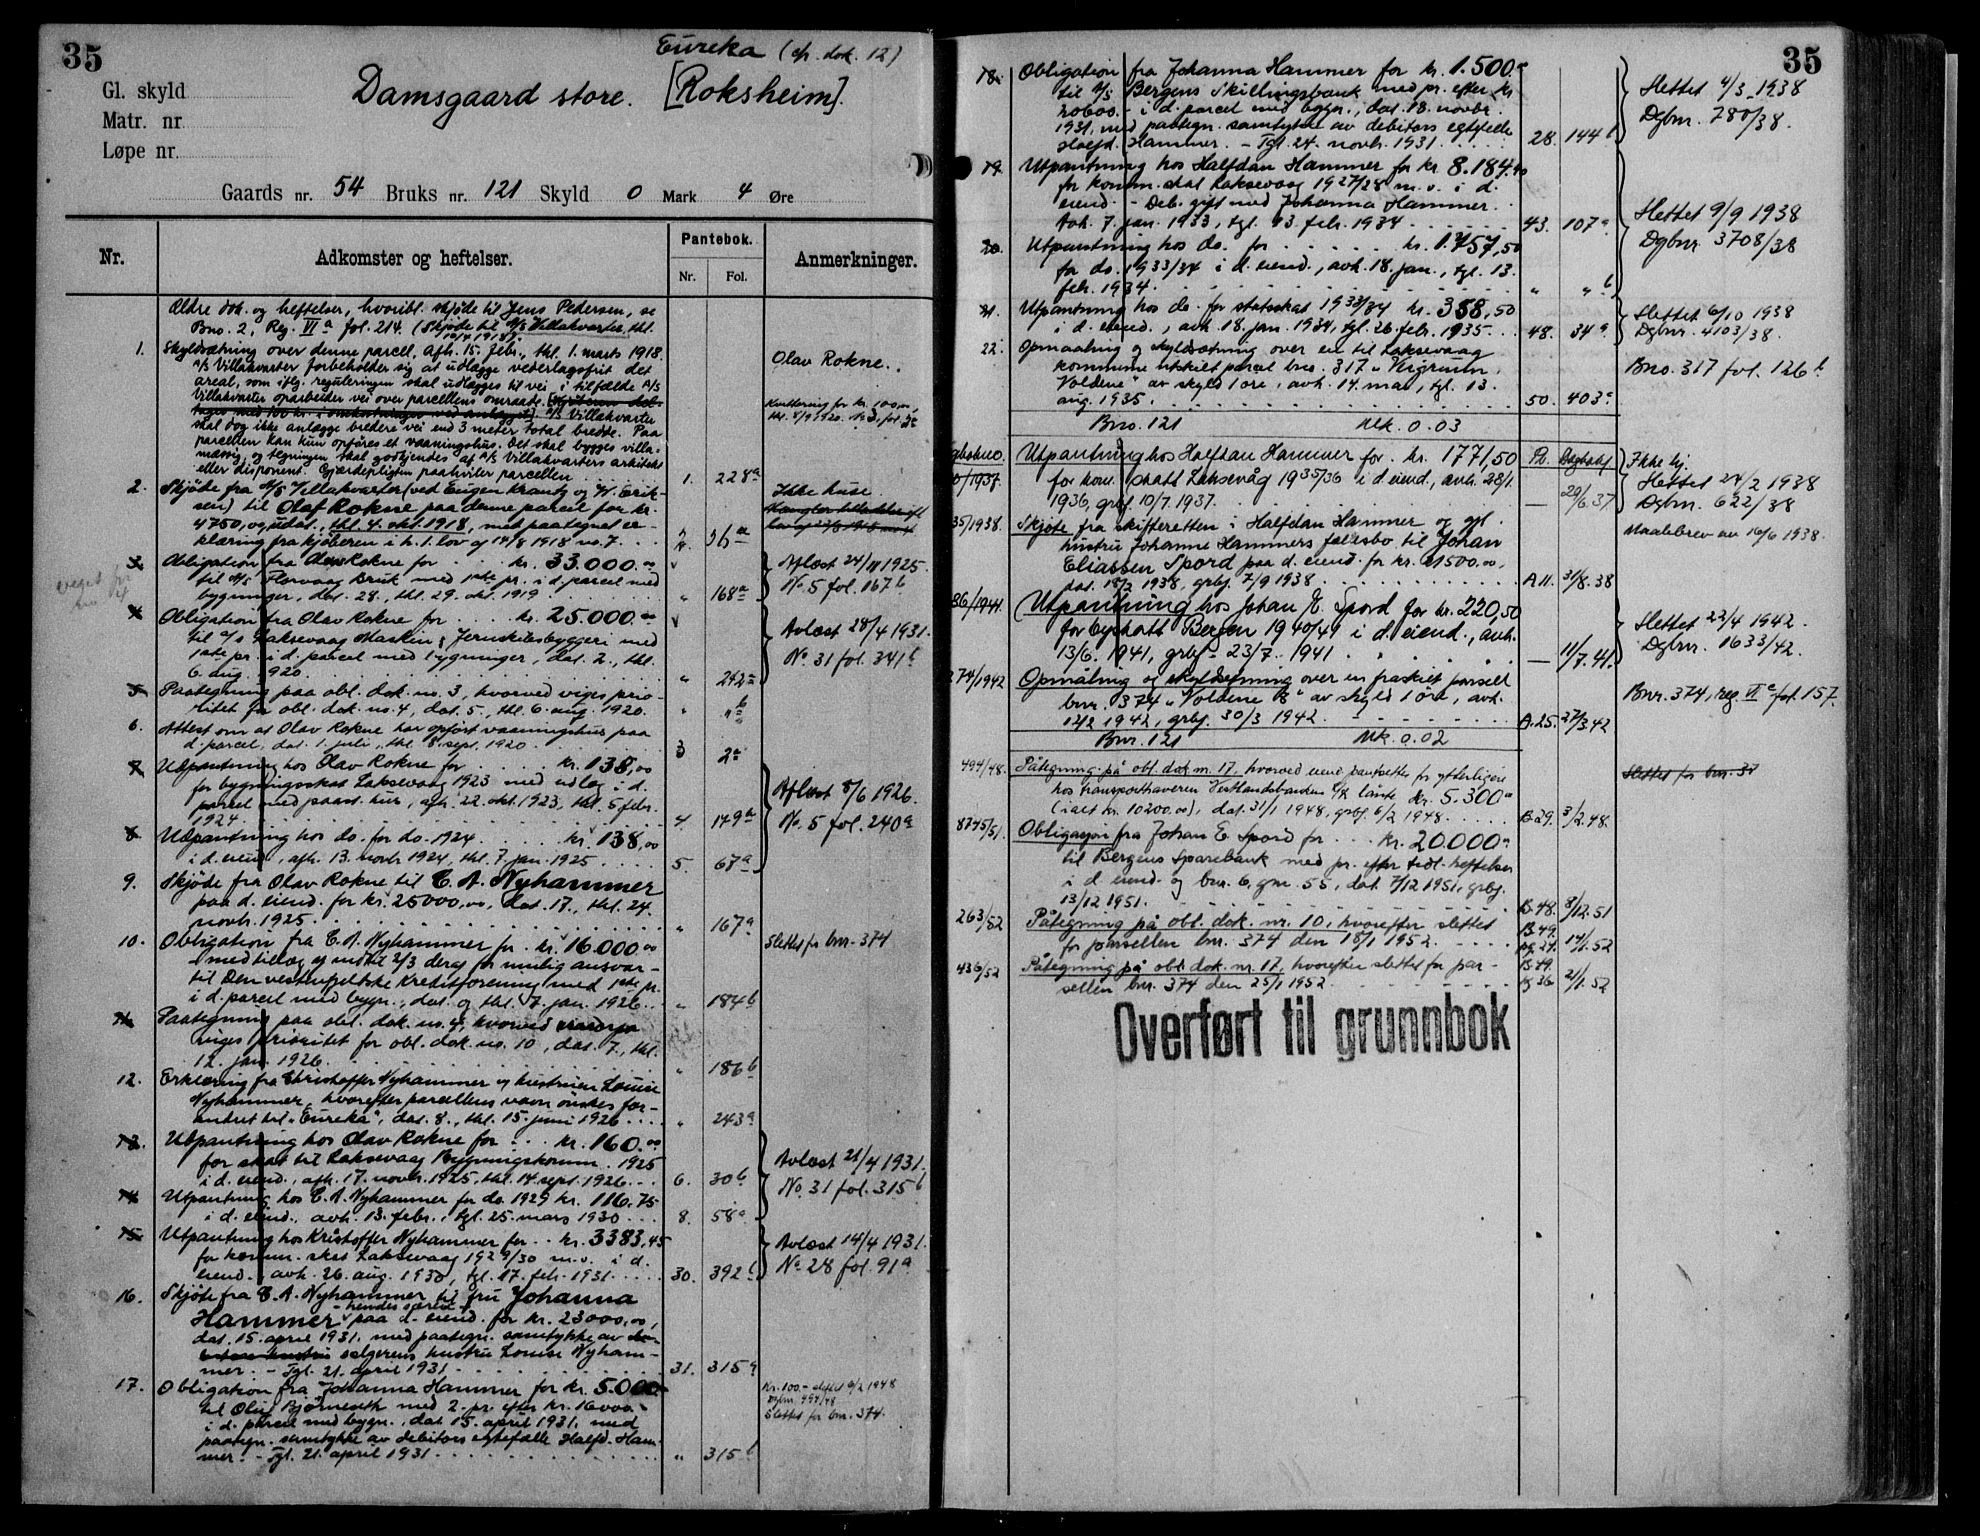 35
Eureka (cfr. dok. 12)
Damsgaard store. [Roksheim].
Gl. skyld
Matr. nr.
Løpe nr.
Gaards nr. 54 Bruks nr. 121 Skyld 0 Mark 4 Øre
Nr. Adkomster og heftelser. Pantebok. Anmerkninger.
Nr. Fol.
Ældre dok. og heftelser, hvoribl. skjøde til Jens Pedersen, se
Bno. 2, Reg. VI a fol. 214. (Skjøde til A/S Villakvarter, thl.
10/4 1918).
1. Skyldsætning over denne parcel, afh. 15. febr., thl. 1. marts 1918.
A/S Villakvarter forbeholder sig at utlægge vederlagsfrit det
areal, som iflg. reguleringen skal utlægges til vei, i tilfælde A/S
Villakvarter oparbeider vei over parcellens omraade.
A/S Villakvarter
skal dog ikke anlægge bredere vei end 3 meter total bredde. Paa
parcellen kan kun opføres et vaaningshus. Det skal bygges villa-
mæssig, og tegningen skal godkjendes af A/S Villakvarters arkitekt
eller disponent. Gjærdepligten paahviler parcellen 1. 228a
Olav Rokne.
Kvittering for kr. 100,
thl. 8/9 1920. No 3, fol 2a
2. Skjøde fra A/S Villakvarter (ved Eugen Krantz og W. Erik-
sen) til Olaf Rokne paa denne parcel for kr.
4750, og udat., thl. 4. okt. 1918, med paategnet er-
klæring fra kjøberen i h. t. lov af 14/8 1918 no. 7. 2. 56a
Ikke huse.
3. Obligation fra Olav Rokne for kr. 33.000.00
til A/S Florvaag Bruk med 1ste pr. i d. parcel med
bygninger, dat. 28., thl. 29. okt. 1919 " 168a
Aflæst 24/11 1925.
No. 5 fol. 167b
4. Obligation fra Olav Rokne for kr. 25.000.00
til A/S Laksevaag Maskin & Jernskibsbyggeri med
1ste pr. i d. parcel med bygninger, dat. 2., thl.
6. aug. 1920. " 242a
Avlæst 28/4 1931.
No. 31 fol. 341b
5. Paategning paa obl. dok. no. 3, hvorved viges prio-
ritet for obl. dok. no. 4, dat. 5., thl. 6. aug. 1920. " " b
6. Attest om at Olav Rokne har opført vaaningshus paa
d. parcel, dat. 1. juli, thl. 8. sept. 1920 3 2a
7. Udpantning hos Olav Rokne for kr. 138,00
for bygningsskat Laksevaag 1923 med udlæg i d.
parcel med paast. hus, afh. 22. okt. 1923, thl. 5. febr.
1924. 4. 149a
Aflæst 8/6 1926.
No. 5 fol. 240a
8. Udpantning hos do. for do. 1924 kr. 138,00
i d. eiend., afh. 13. novb. 1924, thl. 7. jan. 1925 5. 67a
9. Skjøde fra Olav Rokne til C. A. Nyhammer
paa d. eiend. for kr. 25000,00, dat. 17., thl. 24.
novb. 1925 " 167a
10. Obligation fra C. A. Nyhammer for kr. 16.000.00
med tillæg af indtil 2/3 deraf for mulig ansvar-
til Den vestenfjeldske Kreditforening med 1ste pr.
i d. parcel med bygn., dat. og thl. 7. jan. 1926 " 184b
Slettet for bnr. 374
11. Paategning paa obl. dok. no. 4, hvorved
viges prioritet for obl. dok. no. 10, dat. 7., thl.
12. jan. 1926 " 186b
12. Erklæring fra Christoffer Nyhammer og hustruen Louise
Nyhammer, hvorefter parcellens navn ønskes for-
andret til "Eureka", dat. 8., thl. 15. juni 1926 " 243a
13. Utpantning hos Olav Rokne for kr. 160.00
for skat til Laksevaag Bygningskomm. 1925
i d. eiend., afh. 17. novb. 1925, thl. 14. sept. 1926 6. 30b
Avlæst 21/4 1931.
No. 31 fol. 315b
14. Utpantning hos C. A. Nyhammer for do. 1929 kr. 116.75
i d. eiend., avh. 13. febr., tgl. 25. mars 1930 8. 58a
15. Utpantning hos Kristoffer Nyhammer for kr. 3383,45
for komm. skat Laksevaag 1929/30 m.v. i d.
eiend., avh. 26. aug. 1930, tgl. 17. feb. 1931 30. 392b
Avlæst 14/4 1931.
No. 28 fol. 91a
16. Skjøte fra C. A. Nyhammer til fru Johanna
Hammer - hendes særeie - paa d. eiend. for kr. 23000,00,
dat. 15. april 1931. med paategn. samtykke av
selgerens hustru Louise Nyham-
mer. - Tgl. 21. april 1931 31. 315a
17. Obligation fra Johanna Hammer for kr. 5.000
til Oluf Bjørneseth med 2. pr. efter kr. 16000.-
i d. parcel med bygn., dat. 15. april 1931, med
paategn. samtykke av debitors egtefælle Halfd. Ham-
mer. - Tgl. 21. april 1931 " 315b
Kr. 100.- slettet 6/2 1948
Dgbnr. 494/48
Slettet for bnr. 374.
35
18. Obligation fra Johanna Hammer for kr. 1.500.-
til A/S Bergens Skillingsbank med pr. efter kr
20600.- i d. parcel med bygn., dat. 18. novbr.
1931, med paategn. samtykke av debitors egtefelle
Halfd. Hammer. - Tgl. 24. novb. 1931 28. 144b
Slettet 4/3 1938
Dgbnr. 780/38.
19. Utpantning hos Halfdan Hammer for kr 8.184.40
for komm. skat Laksevaag 1927/28 m.v. i d.
eiend. - Deb. gift med Johanna Hammer.
Avh. 7. jan. 1933, tgl. 13 feb. 1934 43. 107a
Slettet 9/9 1938
Dgbnr 3708/38
20. Utpantning hos do. for kr. 1.757,50
for do. 1933/34 i d. eiend., avh. 18. jan., tgl. 13.
feb. 1934 " " b
21. Utpantning hos do. for statsskat 1933/34 kr. 358,50
i d. eiend., avh. 18. jan. 1934, tgl. 26. feb. 1935 48. 34a
Slettet 6/10 1938
Dgbnr. 4103/38.
22. Opmaaling og skyldsætning over en til Laksevaag
kommune utskilt parcel bnr. 317 "Veigrunn,
Voldene" av skyld 1 øre, avh. 14. mai, tgl. 13.
aug. 1935. 50. 403a
Bno. 317 fol. 126b
Bno. 121 Mk. 0.03
Utpantning hos Halfdan Hammer for kr. 1771,50
for kom. skatt Laksevåg 1935/36 i d. eiend., avh. 28/1
1936, grbf. 10/7. 1937. — 29/6.37
Ikke hj.
Slettet 24/2 1938
Dgbnr. 622/38
Skjøte fra skifteretten i Halfdan Hammer og gjl.
hustru Johanne Hammers fellesbo til Johan
Eliassen Spord paa d. eiend. for kr. 21500.00,
dat. 18/2 1938, grbf. 7/9 1938 A 11. 31/8.38
Maalebrev av 16/6 1938.
86/1941. Utpantning hos Johan E. Spord for kr. 220,50
for byskatt Bergen 1940/41 i d. eiend., avh.
13/6. 1941, grbf. 23/7. 1941 — 11/7.41.
Slettet 22/4 1942.
Dgbnr. 1633/42.
274/1942 Opmåling og skyldsetning over en fraskilt parsell
bnr. 374 "Voldene B" av skyld 1 øre, avh.
12/2 1942, grbf. 30/3 1942. A.25. 27/3 42
Bnr. 374, reg. VI c fol. 157.
Bnr. 121 Mk. 0.02
494/48. Påtegning på obl. dok. nr. 17, hvorved eiend. pantsettes for ytterligere
hos transporthaveren Vestlandsbanken A/S lånte kr. 5.300.00
(ialt kr. 10200.00), dat. 31/1 1948, grbf. 6/2 1948 B.29. 3/2.48.
8745/51. Obligasjon fra Johan E. Spord for kr. 20.000.-
til Bergens Sparebank med pr. efter tidl. heftelser
i d. eiend. og bnr. 6, gnr. 55, dat. 7/12 1951, grbf.
13/12 1951. B.48. 8/12.51
263/52 Påtegning på obl. dok. nr. 10, hvorefter slettet
for parsellen bnr. 374 den 18/1 1952. B.49. pg. 24. 14/1.52
436/52 Påtegning på obl. dok. nr. 17, hvorefter slettet for par-
sellen bnr. 374 den 25/1 1952 B.49. pg 36 21/1.52
Overført til grunnbok